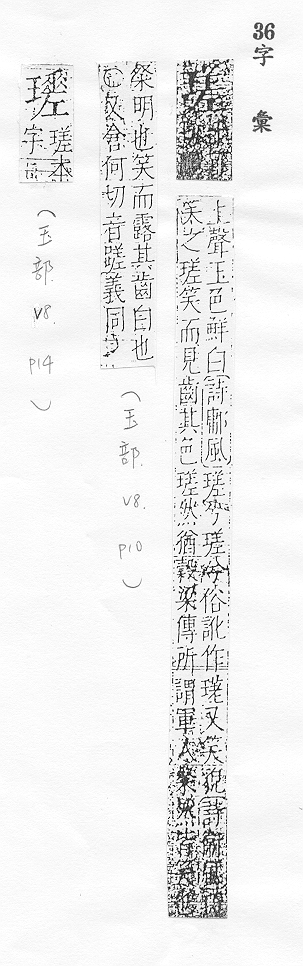 36字彙
瑳
上聲玉色鮮白詩鄘風瑳兮瑳兮俗訛作又笑貌詩衛風
笑之瑳笑而見齒其色瑳然猶穀梁傳所謂軍人粲然皆笑
粲明也笑而露其齒自也
○又倉何切音蹉義同
(玉部. v8. p10)
瑳本
字
(玉部. v8. p14)